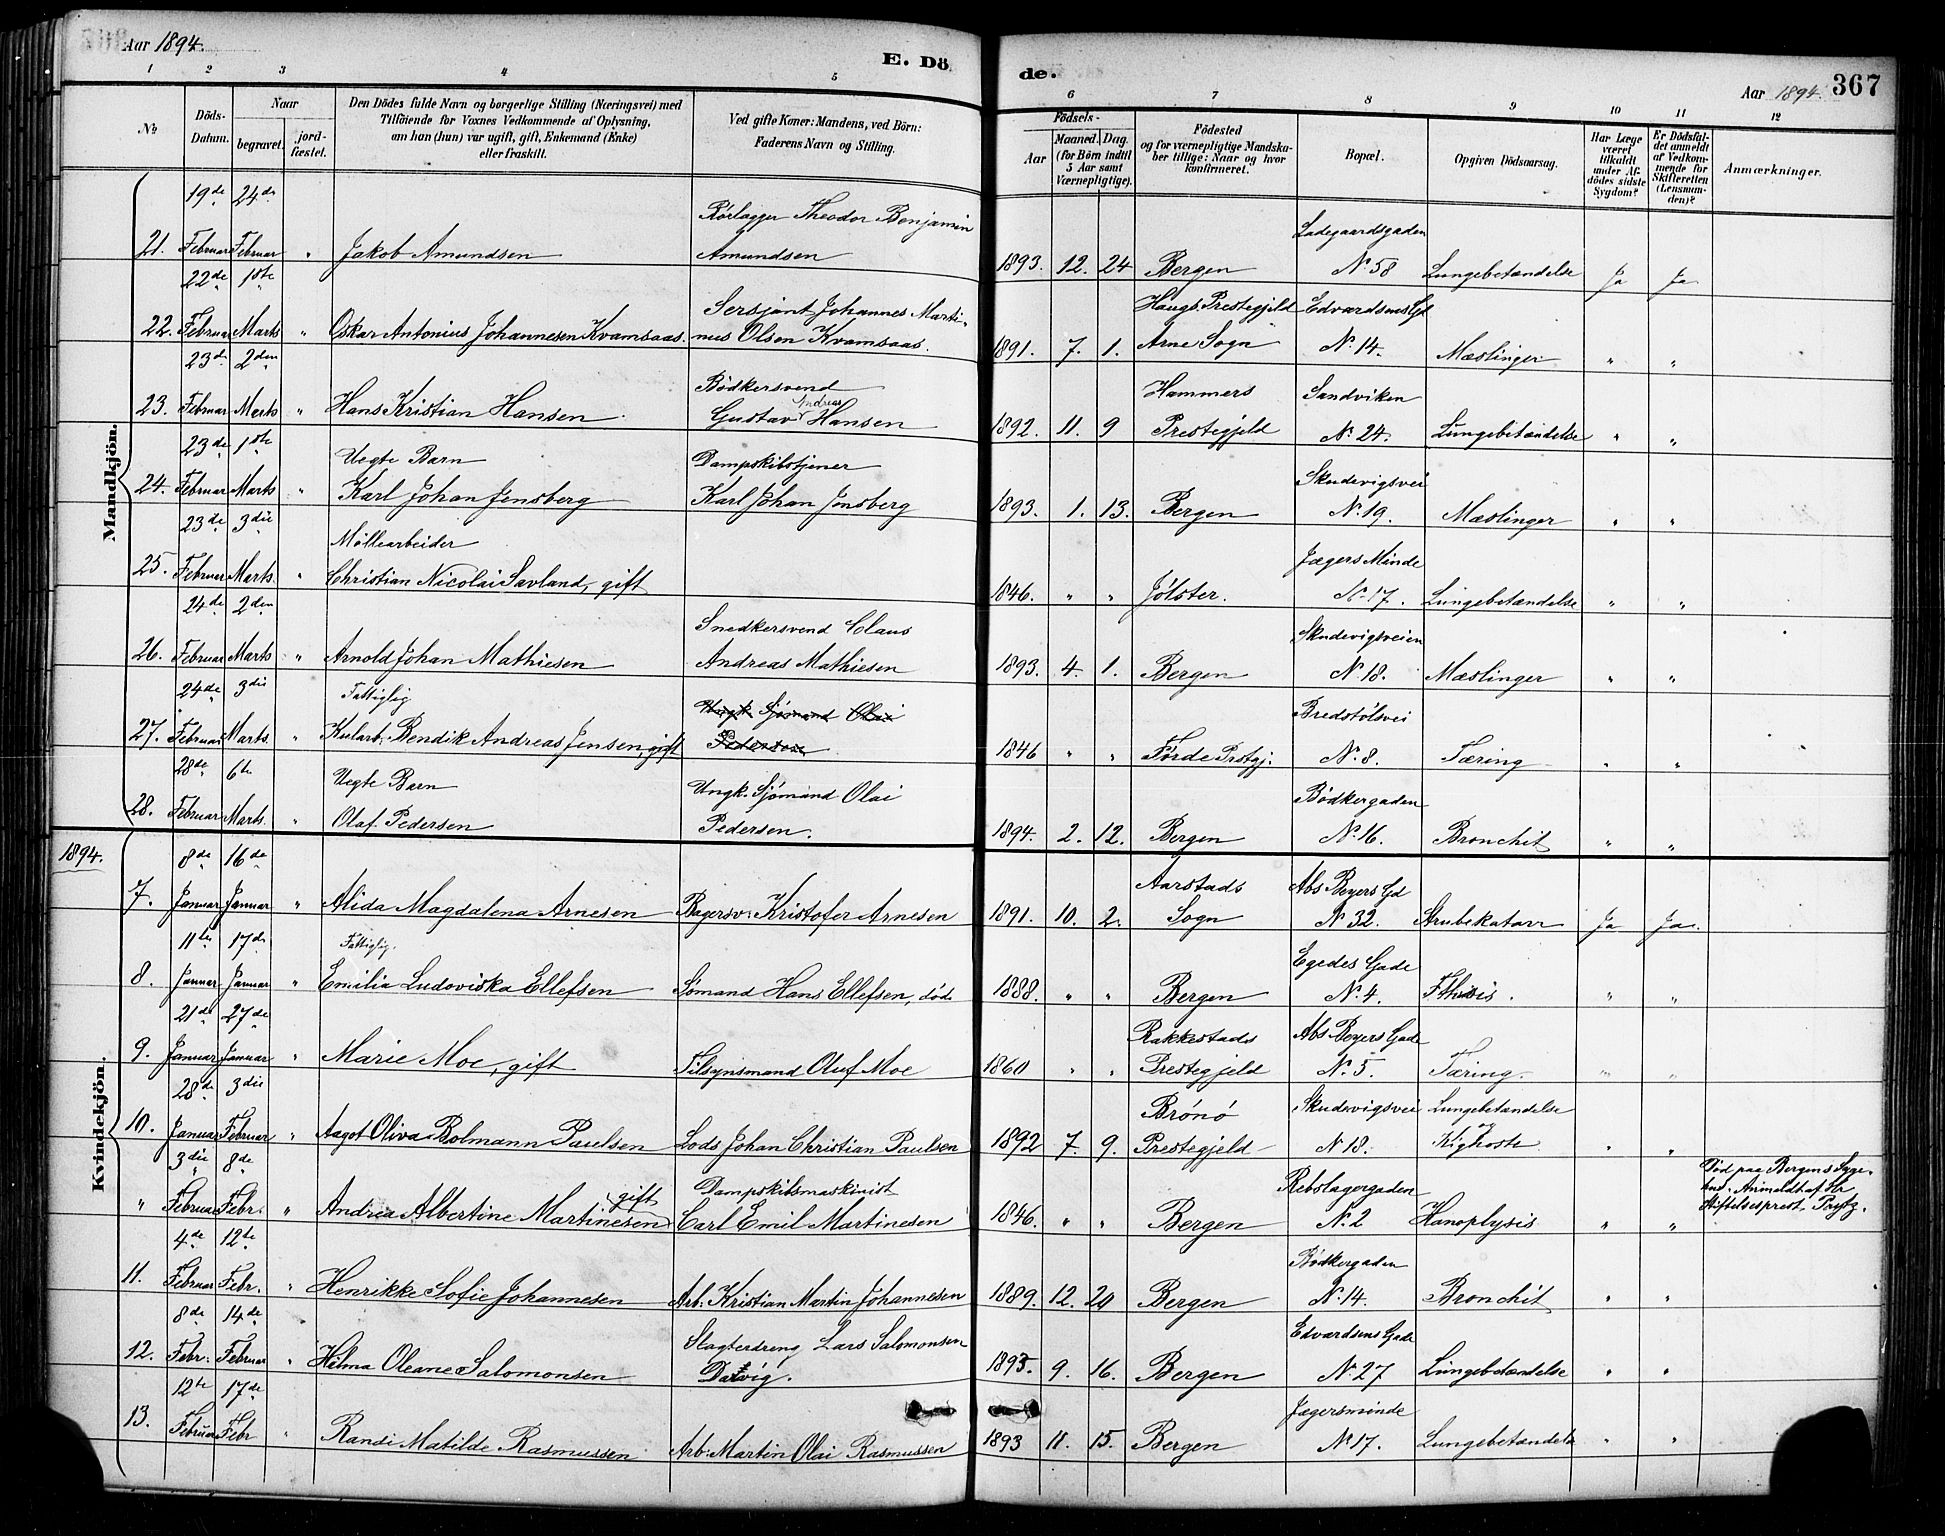 Aar 1894.
E. Dö
de.
Aar 1894.
367
1 2 3 4 5 6 7 8 9 10 11 12
No
Döds-Datum.
Naar
begravet.
jord-fæstet.
Den Dödes fulde Navn og borgerlige Stilling (Næringsvei) med
Tilföiende for Voxnes Vedkommende af Oplysning,
om han (hun) var ugift, gift, Enkemand (Enke)
eller fraskilt.
Ved gifte Koner: Mandens, ved Börn:
Faderens Navn og Stilling.
Födsels-
Aar
Maaned. Dag.
(for Börn indtil
5 Aar samt
Værnepligtige).
Födested
og for værnepligtige Mandska-
ber tillige: Naar og hvor
konfirmeret.
Bopæl.
Opgiven Dödsaarsag.
Har Læge
været
tilkaldt
under Af-
dödes sidste
Sygdom?
Er Dödsfal-
det anmeldt
af Vedkom-
mende for
Skifteretten
(Lensman-
den)?
Anmærkninger.
Mandkjön.
19de 24de Rørlægger Theodor Benjamin Ladegaardsgaden
21. Februar Februar " Jakob Amundsen Amundsen 1893. 12. 24 Bergen No 58 Lungebetændelse Ja Ja
22de 1ste Sersjant Johannes Marti- Haugs Prestegjeld Edvardsens Gd
22. Februar Marts " Oskar Antonius Johannesen Kvamsaas. nus Olsen Kvamsaas. 1891. 7. 1. Arne Sogn No 14. Mæslinger " "
23de 2den Bødkersvend Hammers Sandviken
Andreas
23. Februar Marts " Hans Kristian Hansen. Gustav Hansen 1892. 11. 9 Prestegjeld No 24. Lungebetændelse " "
23de 1ste Uegte Barn Dampskibstjener Skudevigsvei
24. Februar Marts " Karl Johan Jensberg Karl Johan Jensberg 1893. 1. 13. Bergen No 19. Mæslinger " "
23de 3die Møllearbeider Jægers Minde
25. Februar Marts " Christian Nicolai Savland, gift 1846. " " Jølster. No 17. Lungebetændelse " "
24de 2den Snedkersvend Claus Skudevigsveien
26. Februar Marts " Arnold Johan Mathiesen Andreas Mathiesen 1893. 4. 1. Bergen No 18. Mæslinger " "
24de 3die Fattiglig Ungk. Sjømand Olai Bredstølsvei
27. Februar Marts. " Kularb. Bendik Andreas Jensen, gift Pedersen 1846 " " Førde Prstgj. No 8. Tæring " "
28de 6te Uegte Barn Ungk. Sjømand Olai Bødkergaden
28. Februar Marts. " Olaf Pedersen Pedersen. 1894. 2. 12. Bergen No 16. Bronchit " "
1894.
Kvindekjön.
8de 16de Aarstads Abs Beyers Gd
7. Januar Januar " Alida Magdalena Arnesen Bagersv: Kristofer Arnesen 1891. 10. 2. Sogn No 32. Strubekatarr Ja Ja.
11te 17de Fattiglig. Egedes Gade
8. Januar Januar " Emilia Ludoviska Ellefsen Sømand Hans Ellefsen, død 1888. " " Bergen No 4. Fthisis. " "
21de 27de Rakkestads Abs Beyers Gade
9. Januar Januar " Marie Moe, gift Tilsynsmand Oluf Moe 1860 " " Prestegjeld No 5. Tæring. " "
28de 3die Brønø Skudevigsvei Lungebetændelse
10. Januar Februar " Aagot Oliva Bolmann Paulsen Lods Johan Christian Paulsen 1892 7. 9. Prestegjeld No 18. og Kighoste " "
3die 8de gift Dampskibsmaskinist Rebslagergaden Død paa Bergens Syge-
" Februar Febr. " Andrea Albertine Martinesen Carl Emil Martinesen 1846. " " Bergen No 2 Hanoplysis " " hus. Anmeldt af Hr
Stiftelsesprest Prytz.
4de 12te Bødkergaden
11. Februar Febr. " Henrikke Sofie Johannesen Arb: Kristian Martin Johannesen 1889. 12. 20 Bergen No 14. Bronchit " "
8de 14de Slagterdreng Lars Salomonsen Edvardsens Gade
12. Febr. Februar " Hilma Oleane Salomonsen Dalvig. 1893. 9. 16. Bergen No 27 Lungebetændelse " "
12te 17de Jægersminde
13. Februar Febr " Randi Matilde Rasmussen Arb: Martin Olai Rasmussen 1893 11. 15. Bergen No 17. Lungebetændelse " "